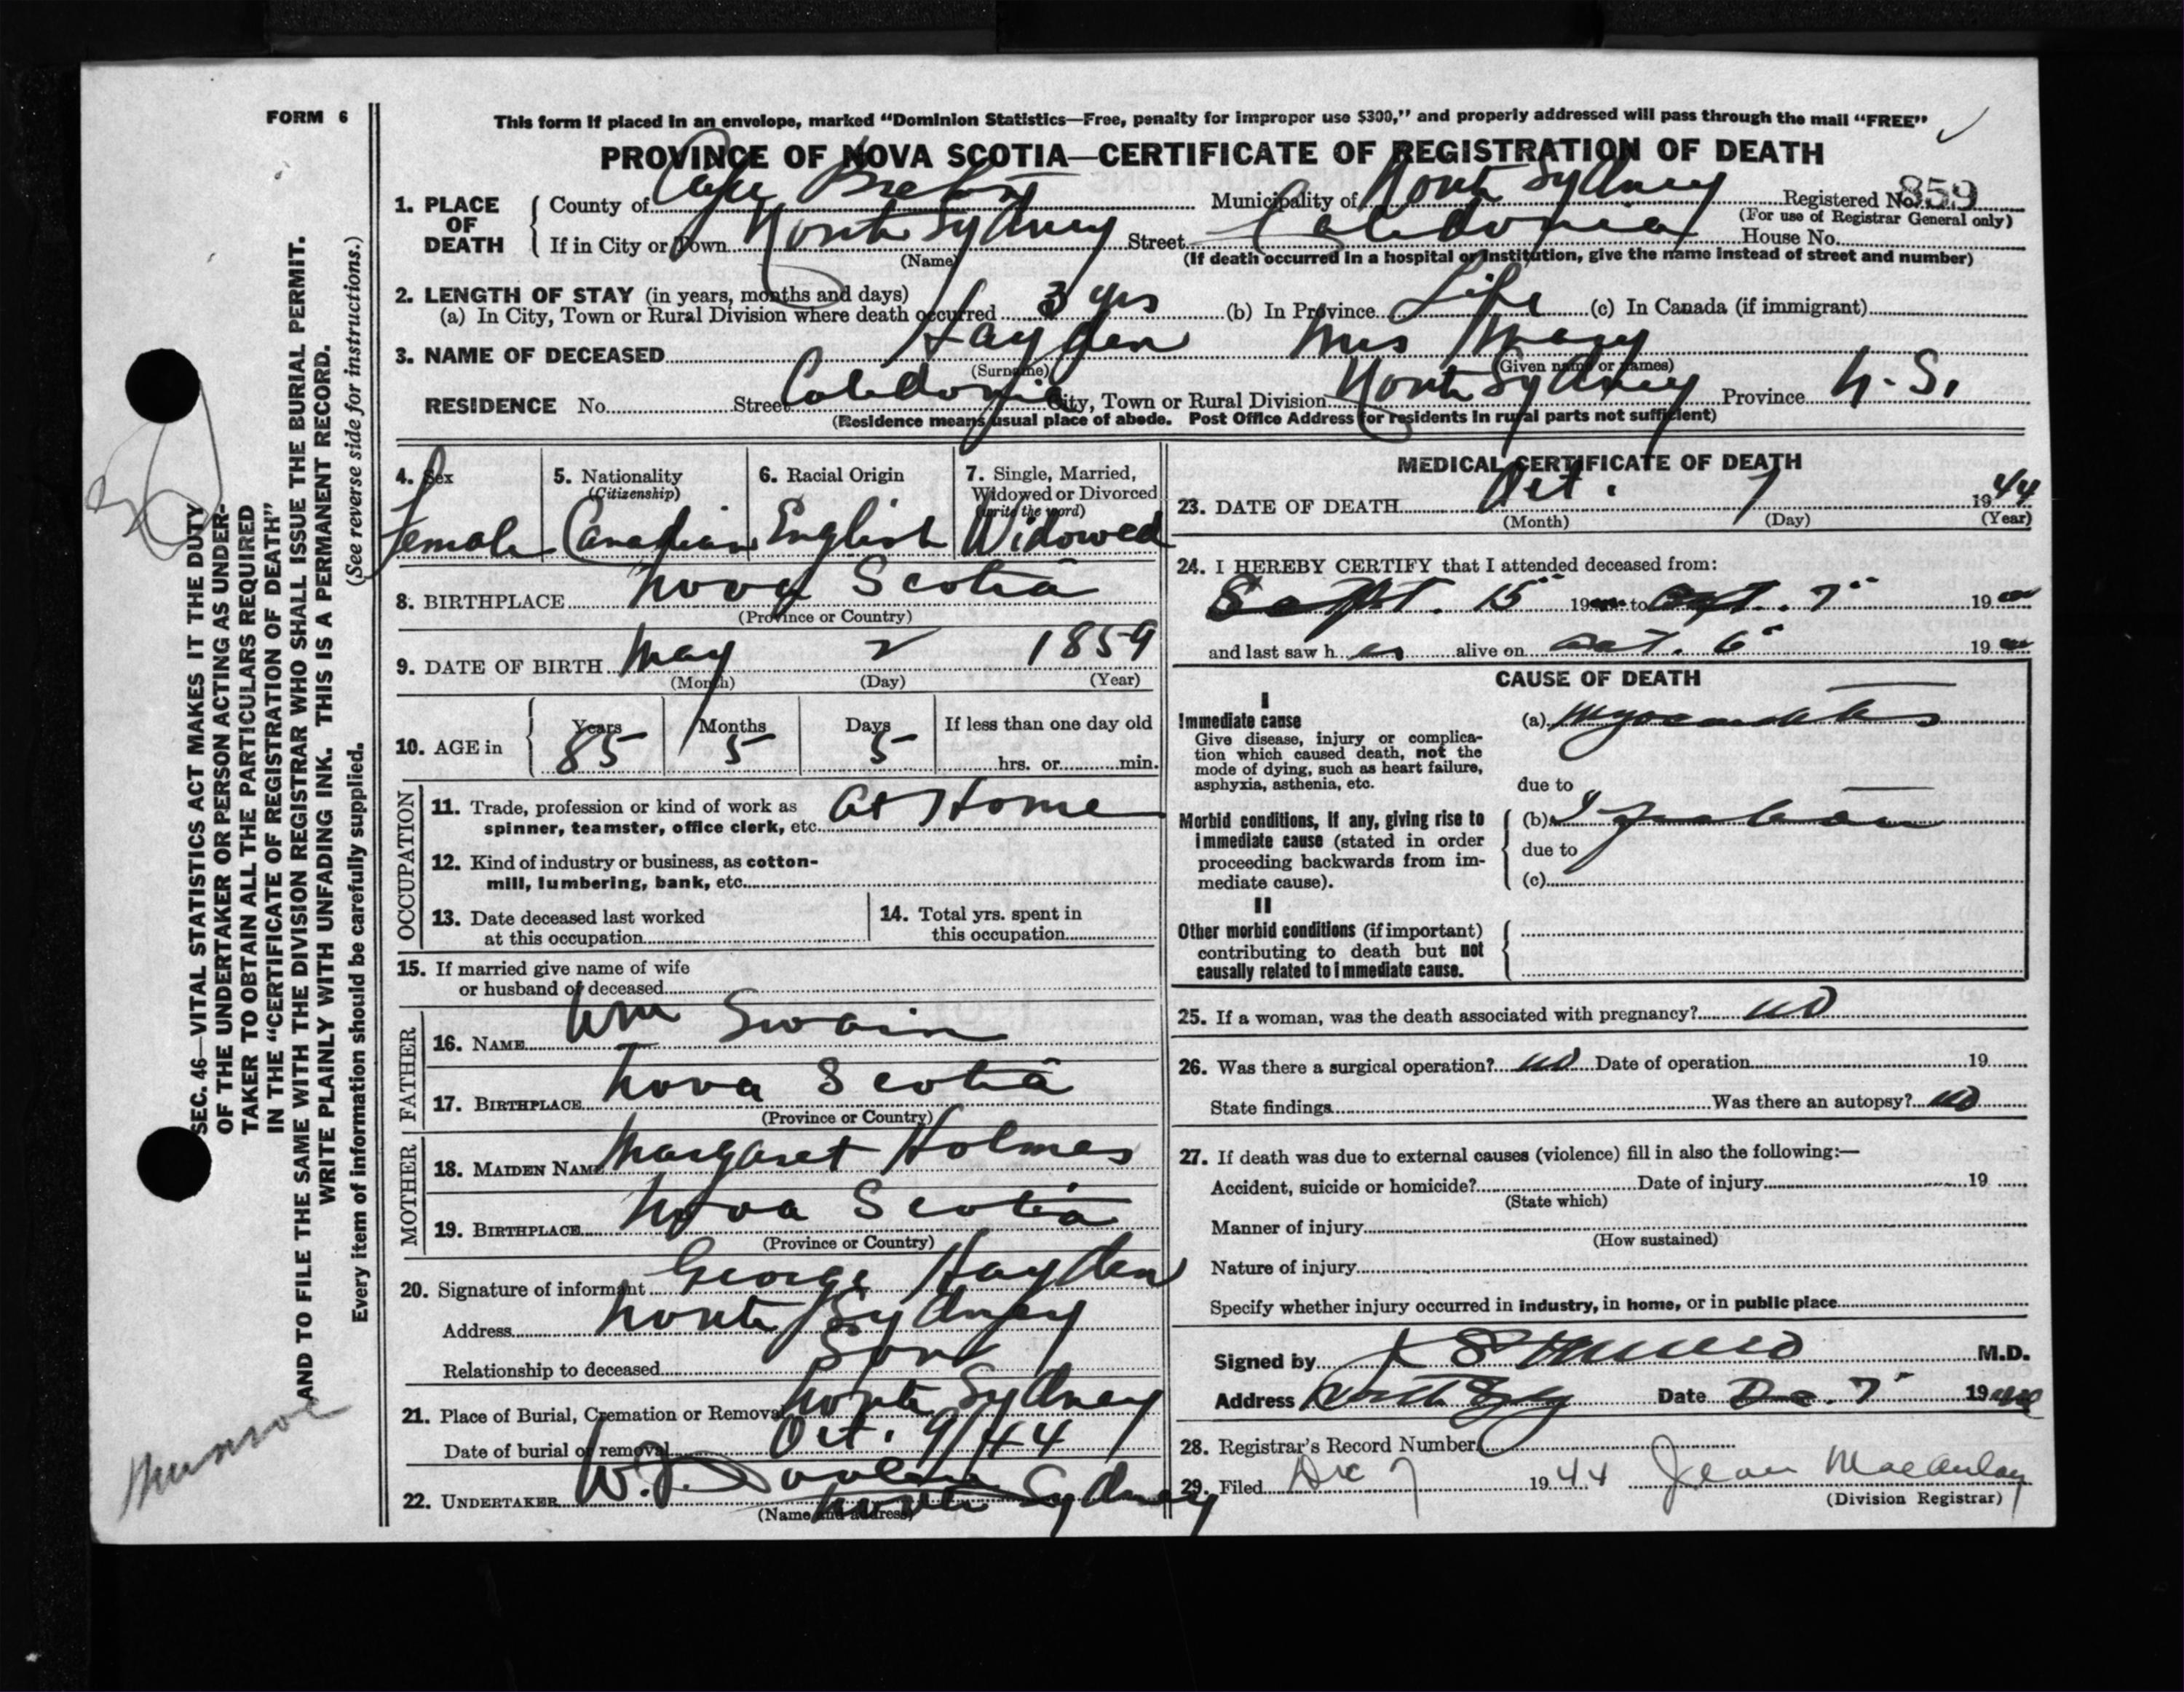 FORM 6
This form if placed in an envelope, marked “Dominion Statistics—Free, penalty for improper use $300,” and properly addressed will pass through the mail “FREE”
PROVINCE OF NOVA SCOTIA—CERTIFICATE OF REGISTRATION OF DEATH
1. PLACE OF DEATH { County of Cape Breton Municipality of North Sydney Registered No. 859
(For use of Registrar General only)
If in City or Town North Sydney Street Caledonia House No.
(Name) (If death occurred in a hospital or institution, give the name instead of street and number)
2. LENGTH OF STAY (in years, months and days)
(a) In City, Town or Rural Division where death occurred 3 yrs (b) In Province Life (c) In Canada (if immigrant)
3. NAME OF DECEASED Hayden Mrs Mary
(Surname) (Given name or names)
RESIDENCE No. Street Caledonia City, Town or Rural Division North Sydney Province N.S.
(Residence means usual place of abode. Post Office Address for residents in rural parts not sufficient)
4. Sex Female
5. Nationality (Citizenship) Canadian
6. Racial Origin English
7. Single, Married, Widowed or Divorced (write the word) Widowed
8. BIRTHPLACE Nova Scotia
(Province or Country)
9. DATE OF BIRTH May 2 1859
(Month) (Day) (Year)
10. AGE in { Years 85 Months 5 Days 5 If less than one day old
hrs. or min.
OCCUPATION
11. Trade, profession or kind of work as
spinner, teamster, office clerk, etc. At Home
12. Kind of industry or business, as cotton-
mill, lumbering, bank, etc.
13. Date deceased last worked
at this occupation
14. Total yrs. spent in
this occupation
15. If married give name of wife
or husband of deceased
FATHER
16. NAME Wm Swain
17. BIRTHPLACE Nova Scotia
(Province or Country)
MOTHER
18. MAIDEN NAME Margaret Holmes
19. BIRTHPLACE Nova Scotia
(Province or Country)
20. Signature of informant George Hayden
Address North Sydney
Relationship to deceased Son
21. Place of Burial, Cremation or Removal North Sydney
Date of burial or removal Oct. 9/44
22. UNDERTAKER W.J. North Sydney
(Name and address)
MEDICAL CERTIFICATE OF DEATH
23. DATE OF DEATH Oct. 7 1944
(Month) (Day) (Year)
24. I HEREBY CERTIFY that I attended deceased from:
Sept. 15 19 to Oct. 7 19
and last saw h er alive on Oct. 6 19
CAUSE OF DEATH
I
Immediate cause
Give disease, injury or complica-
tion which caused death, not the
mode of dying, such as heart failure,
asphyxia, asthenia, etc.
(a) Myocarditis
due to
Morbid conditions, if any, giving rise to
immediate cause (stated in order
proceeding backwards from im-
mediate cause).
(b)
due to
(c)
II
Other morbid conditions (if important)
contributing to death but not
causally related to immediate cause.
25. If a woman, was the death associated with pregnancy? no
26. Was there a surgical operation? no Date of operation 19
State findings Was there an autopsy? no
27. If death was due to external causes (violence) fill in also the following:—
Accident, suicide or homicide? Date of injury 19
(State which)
Manner of injury
(How sustained)
Nature of injury
Specify whether injury occurred in industry, in home, or in public place
Signed by Munro M.D.
Address North Sydney Date Dec. 7 19
28. Registrar's Record Number
29. Filed Dec 7 1944 Jean MacAulay
(Division Registrar)
SEC. 46—VITAL STATISTICS ACT MAKES IT THE DUTY
OF THE UNDERTAKER OR PERSON ACTING AS UNDER-
TAKER TO OBTAIN ALL THE PARTICULARS REQUIRED
IN THE “CERTIFICATE OF REGISTRATION OF DEATH”
AND TO FILE THE SAME WITH THE DIVISION REGISTRAR WHO SHALL ISSUE THE BURIAL PERMIT.
WRITE PLAINLY WITH UNFADING INK. THIS IS A PERMANENT RECORD.
Every item of information should be carefully supplied. (See reverse side for instructions.)
Munroe